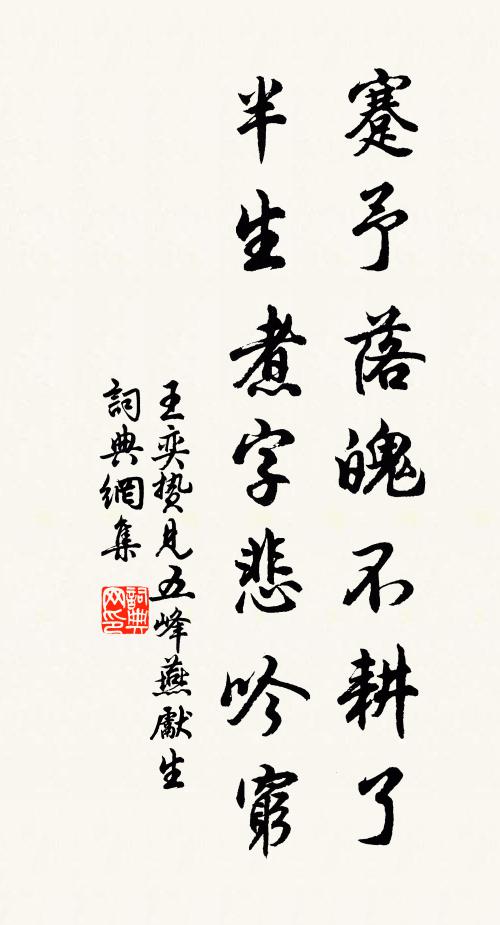 蹇予落魄不耕了
半生煮字悲吟窮
王奕贄見五峰燕獻生
詞典網集
詞典网印